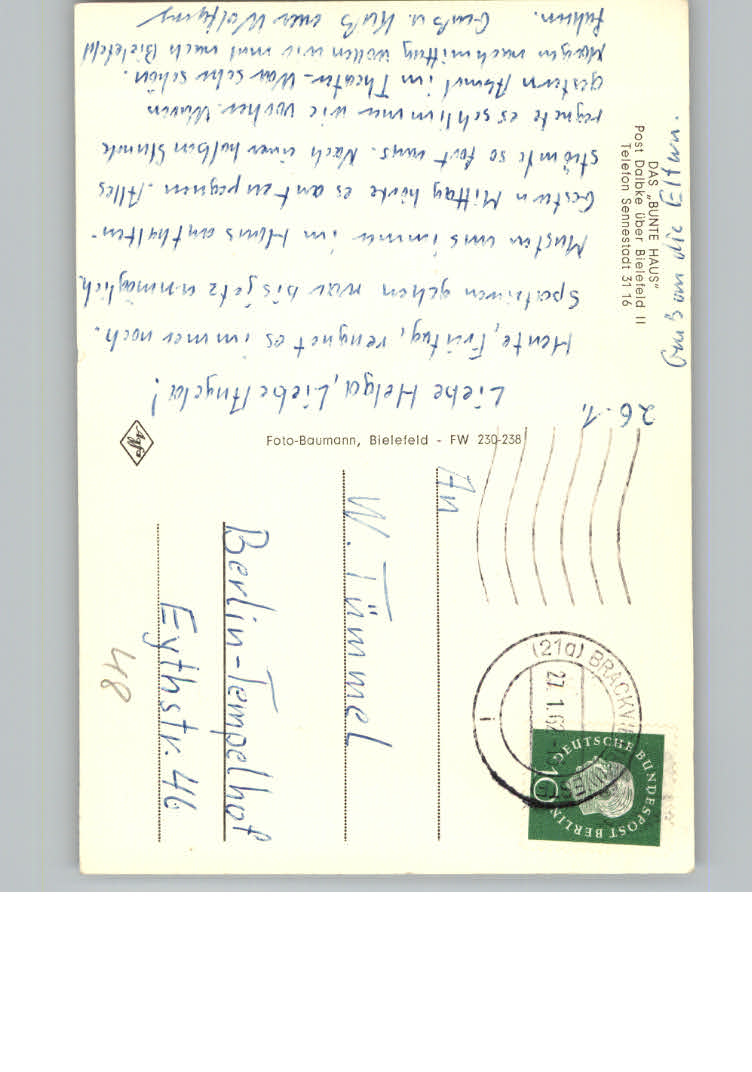 26.1.
Liebe Helga, Liebe Angela!
Heute, Freitag, rengnet es immer noch.
Spatzieren gehen war bis jetz unmöglich
Musten uns immer im Haus aufhalten.
Gestern Mittag hörte es auf zu regnen. Alles
stürmte so fort raus. Nach einer halben Stunde
regnete es schlimmer wie vorher. Waren
gestern Abend im Theater. War sehr schön.
Morgen nachmittag wollen wir mal nach Bielefeld
fahren. Gruß u. Kuß euer Wolfgang
Gruß an die Eltern.
DAS „BUNTE HAUS"
Post Dalbke über Bielefeld II
Telefon Sennestadt 31 16
Foto-Baumann, Bielefeld - FW 230-238
Agfa
An
W. Tümmel
Berlin-Tempelhof
Eythstr. 46
48
(21a) BRACKWEDE
27.1.62
DEUTSCHE BUNDESPOST BERLIN
10